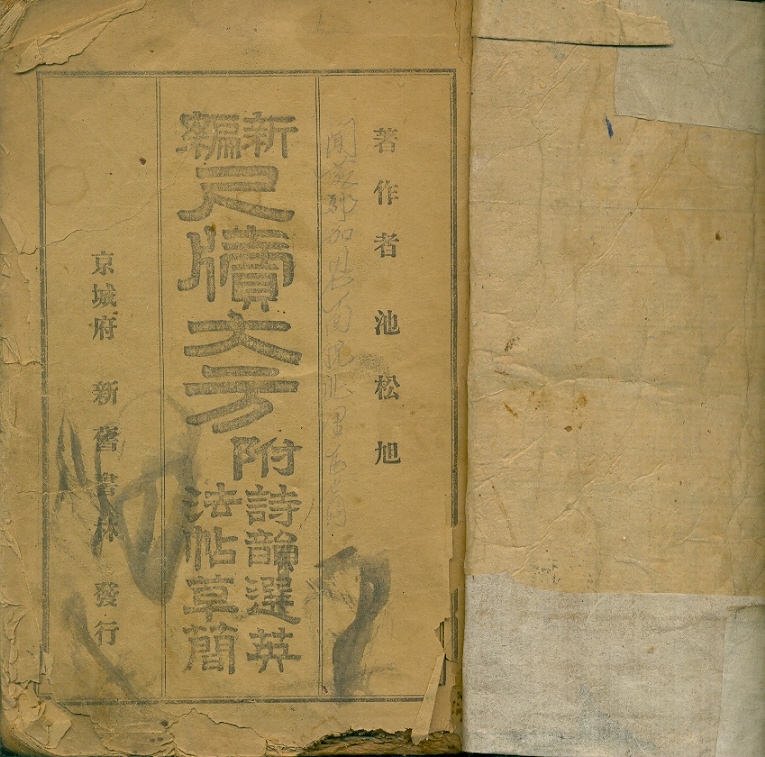 著作者 池松旭
聞慶郡加恩面
新編尺牘大方
附詩韻選英
法帖草簡
京城府 新舊書林 發行